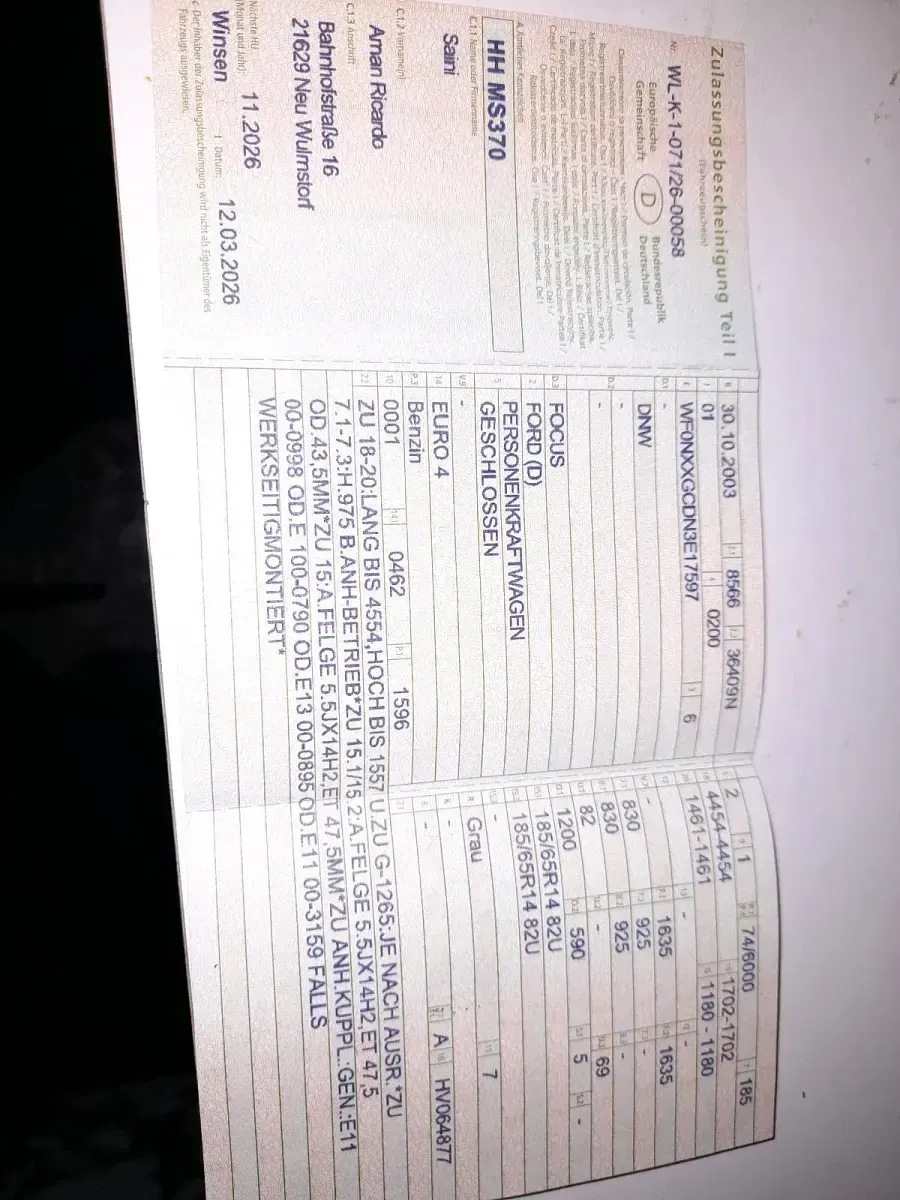 Zulassungsbescheinigung Teil I
(Fahrzeugschein)
Nr. WL-K-1-071/26-00058
Europäische Gemeinschaft
D
Bundesrepublik Deutschland
A Amtliches Kennzeichen
HH MS370
C.1.1 Name oder Firmenname
Saini
C.1.2 Vorname(n)
Aman Ricardo
C.1.3 Anschrift
Bahnhofstraße 16
21629 Neu Wulmstorf
Nächste HU (Monat und Jahr):
11.2026
Winsen
Datum:
12.03.2026
Der Inhaber der Zulassungsbescheinigung wird nicht als Eigentümer des
Fahrzeugs ausgewiesen.
B 30.10.2003 2.1 8566 2.2 36409N
J 01 4 0200
E WF0NXXGCDN3E17597 3 6
D.1 -
DNW
D.2 -
-
D.3 FOCUS
2 FORD (D)
5 PERSONENKRAFTWAGEN
GESCHLOSSEN
V.9 -
14 EURO 4
P.3 Benzin
10 0001 14.1 0462 P.1 1596
22 ZU 18-20:LANG BIS 4554,HOCH BIS 1557 U.ZU G-1265:JE NACH AUSR.*ZU
7.1-7.3:H.975 B.ANH-BETRIEB*ZU 15.1/15.2:A.FELGE 5.5JX14H2,ET 47,5
OD.43,5MM*ZU 15:A.FELGE 5.5JX14H2,ET 47,5MM*ZU ANH.KUPPL.:GEN.:E11
00-0998 OD.E 100-0790 OD.E13 00-0895 OD.E11 00-3159 FALLS
WERKSEITIGMONTIERT*
L 2 9 1 74/6000 T 185
18 4454-4454 19 1702-1702
20 1461-1461 G 1180 - 1180
12 - 13 - Q -
V.7 - F.1 1635 F.2 1635
7.1 830 7.2 925 7.3 -
8.1 830 8.2 925 8.3 -
U.1 82 U.2 - U.3 69
O.1 1200 O.2 590 S.1 5 S.2 -
15.1 185/65R14 82U
15.2 185/65R14 82U
15.3 -
R Grau 11 7
K -
6 - A 16 HV064877
21